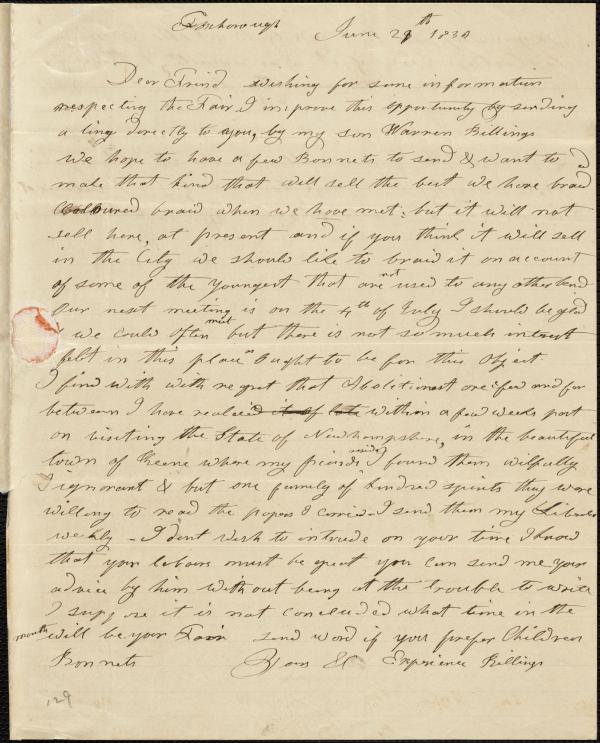 Foxborough June 29th 1834
Dear Frind wishing for some information
respecting the Fair I improve this opportunity by sending
a ling directly to you, by my son Warren Billings
We hope to have a few Bonnets to send & want to
make that kind that will sell the best We have braid
Coloured braid when we have met, but it will not
sell here, at present and if you think it will sell
in the City we should like to braid it on account
of some of the youngest that are not used to any other kind
Our next meeting is on the 4th of July I should be glad
we could often meet but there is not so much intrest
felt in this place " ought to be for this Object
I find with with regret that Abolitionest are few and far
between I have realised it of late within a few weeks past
on visiting the State of Newhampshire, in the beautiful
town of Keene where my friends reside I found them wilfully
Ignorant & but one fumely of kindred spirits they were
willing to read the papers I carried I send them my Liberator
weekly - I dont wish to intrude on your time I know
that your labours must be great you can send me your
advice by him without being at the trouble to write
I suppose it is not concluded what time in the
month will be your Fair send word if you prefer Children
Bonnets Yours &c Experience Billings
129